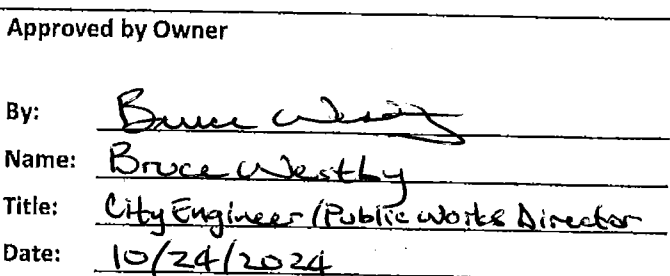 Approved by Owner
By: Bruce Westby
Name: Bruce Westby
Title: City Engineer/Public Works Director
Date: 10/24/2024